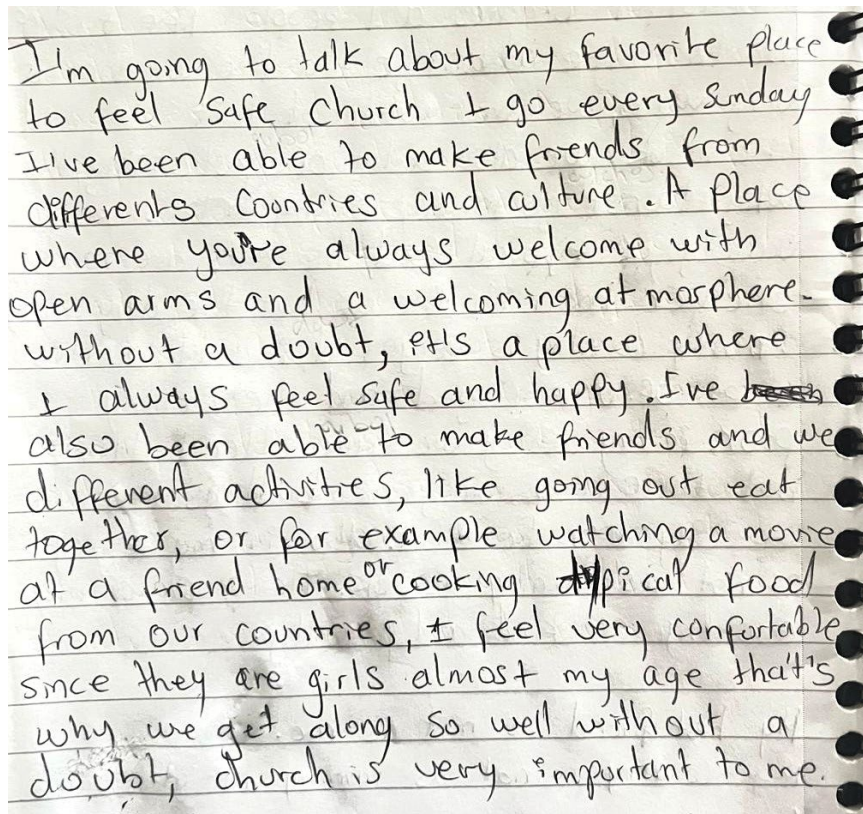 I'm going to talk about my favorite place
to feel safe Church I go every Sunday
I've been able to make friends from
differents Countries and culture. A Place
where you're always welcome with
open arms and a welcoming atmosphere.
without a doubt, it's a place where
I always feel safe and happy. I've
also been able to make friends and we
different activities, like going out eat
together, or for example watching a movie
at a friend home or cooking typical food
from our countries, I feel very confortable
since they are girls almost my age that's
why we get along so well without a
doubt, church is very important to me.